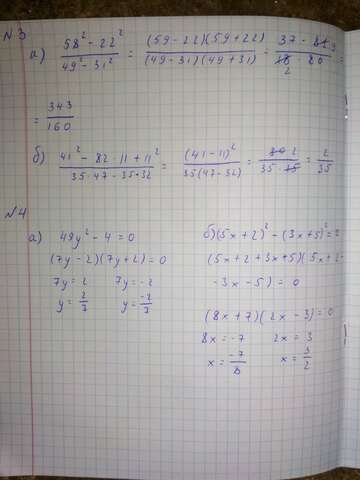 №3
а) (58² - 22²)/(49² - 31²) = ((59-22)(59+22))/((49-31)(49+31)) = (37 · 81 9)/(18 2 · 80) =
= 343/160
б) (41² - 82·11 + 11²)/(35·47 - 35·32) = (41-11)²/(35(47-32)) = (30 2)/(35·15) = 2/35
№4
а) 49y² - 4 = 0
(7y-2)(7y+2)=0
7y=2 7y=-2
y=2/7 y=-2/7
б)(5x+2)² - (3x+5)²=
(5x+2+3x+5)(5x+2-
-3x-5) = 0
(8x+7)(2x-3)=0
8x=-7 2x=3
x=-7/8 x=3/2